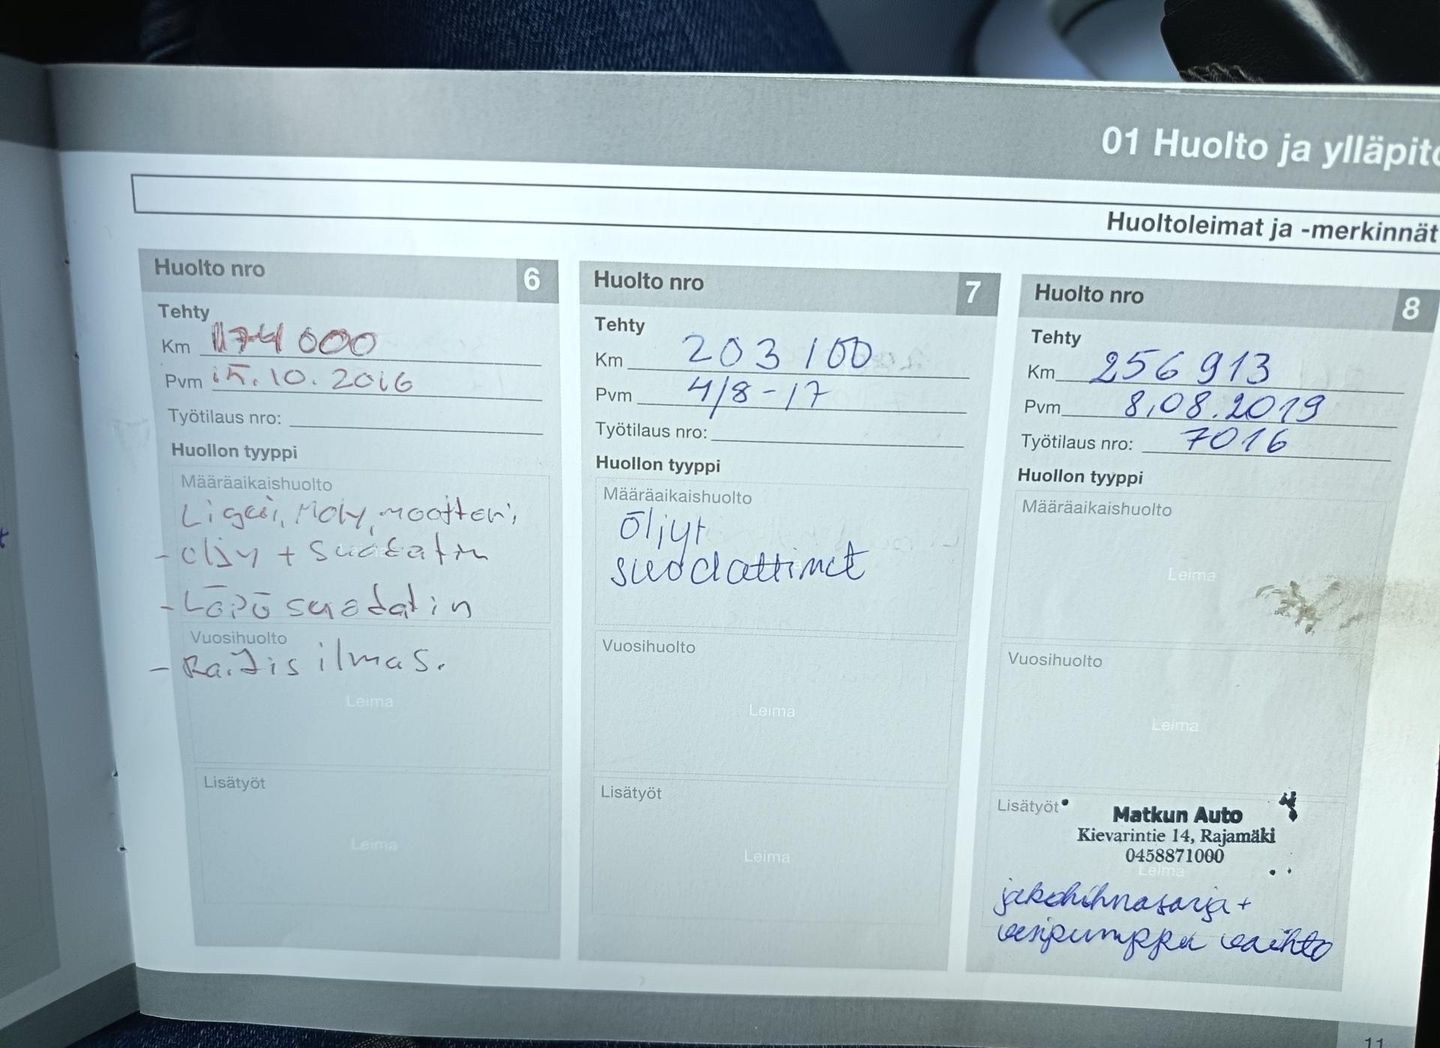 01 Huolto ja ylläpito
Huoltoleimat ja -merkinnät
Huolto nro 6
Tehty
Km 174 000
Pvm 15.10.2016
Työtilaus nro:
Huollon tyyppi
Määräaikaishuolto
Moly, moottori,
- öljy + suodatin
- suodatin
Vuosihuolto
- Raitis ilmas.
Leima
Lisätyöt
Leima
Huolto nro 7
Tehty
Km 203 100
Pvm 4/8-17
Työtilaus nro:
Huollon tyyppi
Määräaikaishuolto
Öljyt
suodattimet
Vuosihuolto
Leima
Lisätyöt
Leima
Huolto nro 8
Tehty
Km 256 913
Pvm 8.08.2019
Työtilaus nro: 7016
Huollon tyyppi
Määräaikaishuolto
Leima
Vuosihuolto
Leima
Lisätyöt
Matkun Auto
Kievarintie 14, Rajamäki
0458871000
Leima
jakohihnasarja +
vesipumppu vaihto
11